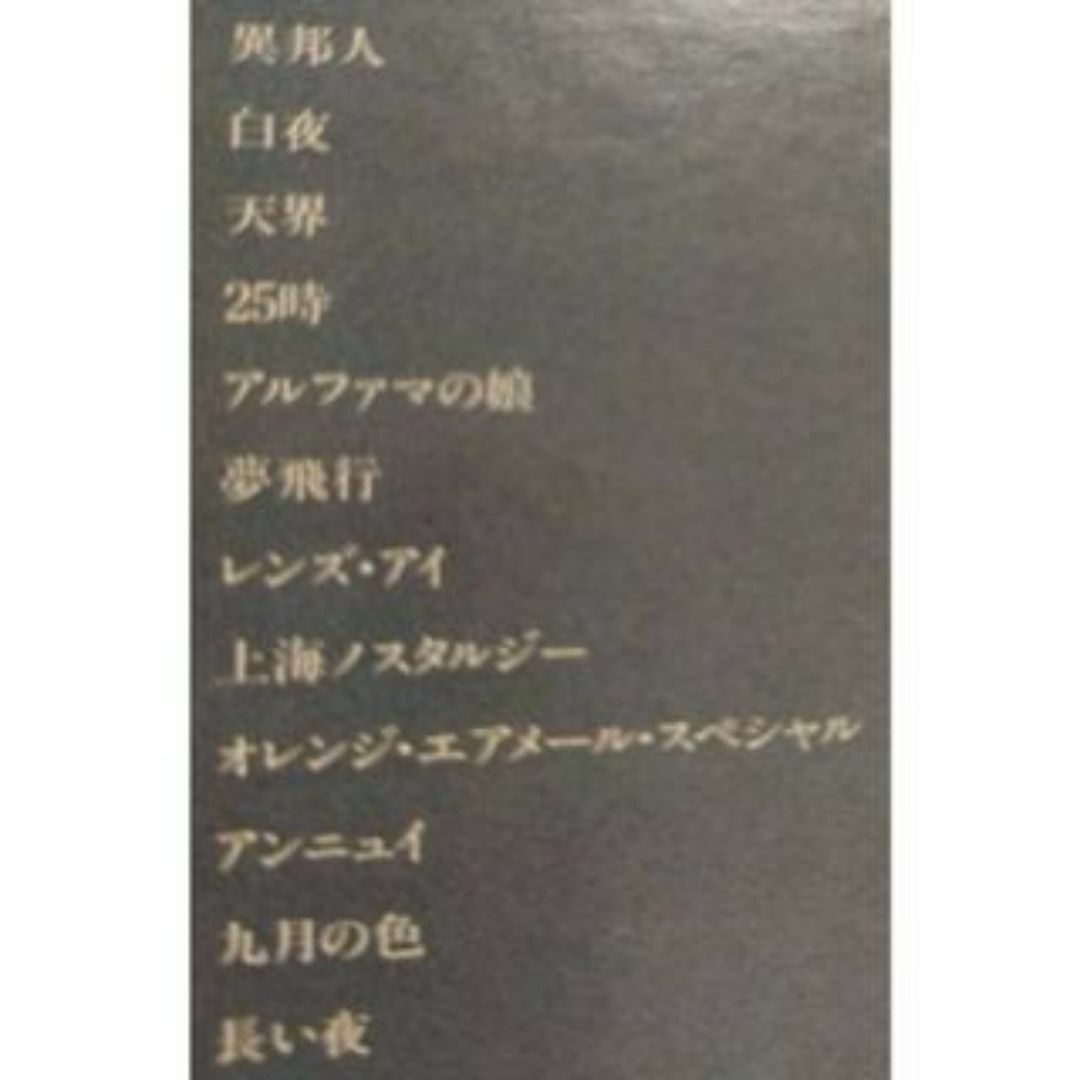 異邦人
白夜
天界
25時
アルファマの娘
夢飛行
レンズ・アイ
上海ノスタルジー
オレンジ・エアメール・スペシャル
アンニュイ
九月の色
長い夜